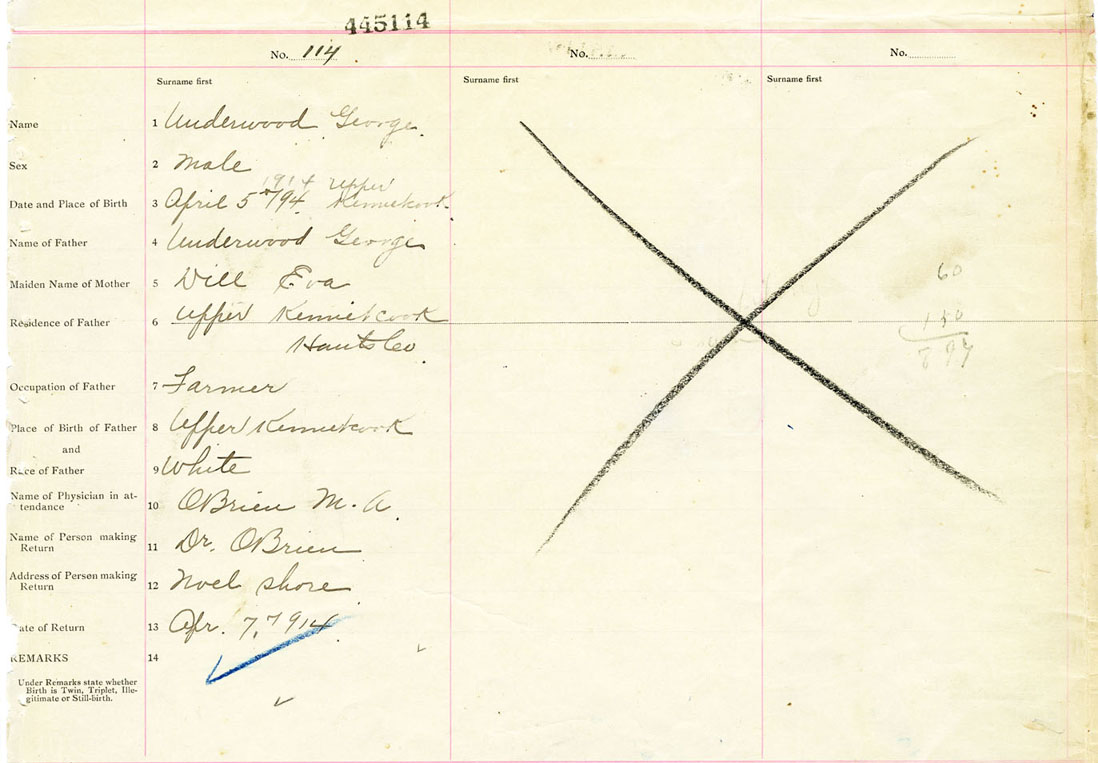 445114
No. 114
No.
No.
Surname first
Surname first
Surname first
Name 1 Underwood George
Sex 2 Male
1914 Upper
Date and Place of Birth 3 April 5th 94 Kennetcook
Name of Father 4 Underwood George
Maiden Name of Mother 5 Dill Eva
Residence of Father 6 Upper Kennetcook
Hants Co
Occupation of Father 7 Farmer
Place of Birth of Father 8 Upper Kennetcook
and
Race of Father 9 White
Name of Physician in at-
tendance 10 OBrien M. A.
Name of Person making
Return 11 Dr. OBrien
Address of Person making
Return 12 Noel shore
Date of Return 13 Apr. 7, 1914
REMARKS 14
Under Remarks state whether
Birth is Twin, Triplet, Ille-
gitimate or Still-birth.
60